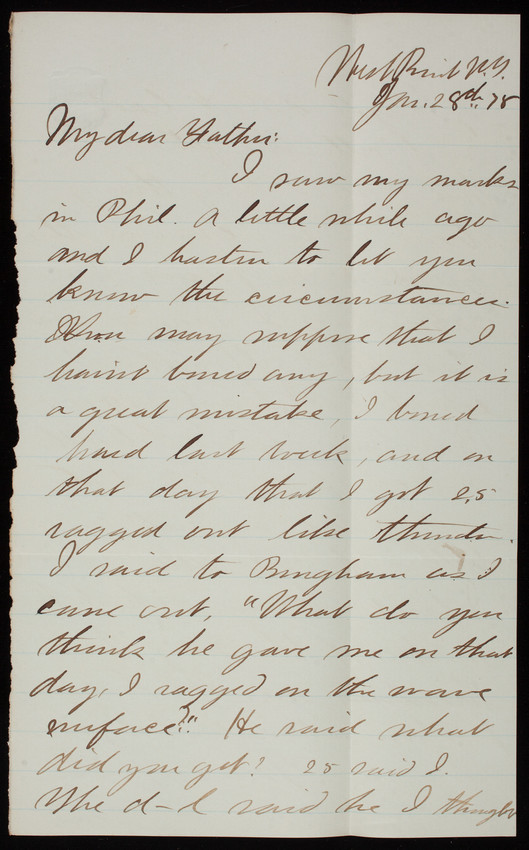 West Point N.Y.
Jan. 28th 78
My dear Father:
I saw my marks
in Phil. a little while ago
and I hasten to let you
know the circumstances.
You may suppose that I
haint boned any, but it is
a great mistake, I boned
hard last week, and on
that day that I got 2,5
ragged out like thunder.
I said to Bingham as I
came out, "What do you
think he gave me on that
day, I ragged on the wave
surface?" He said what
did you get? 25 said I.
The d–l said he I thought